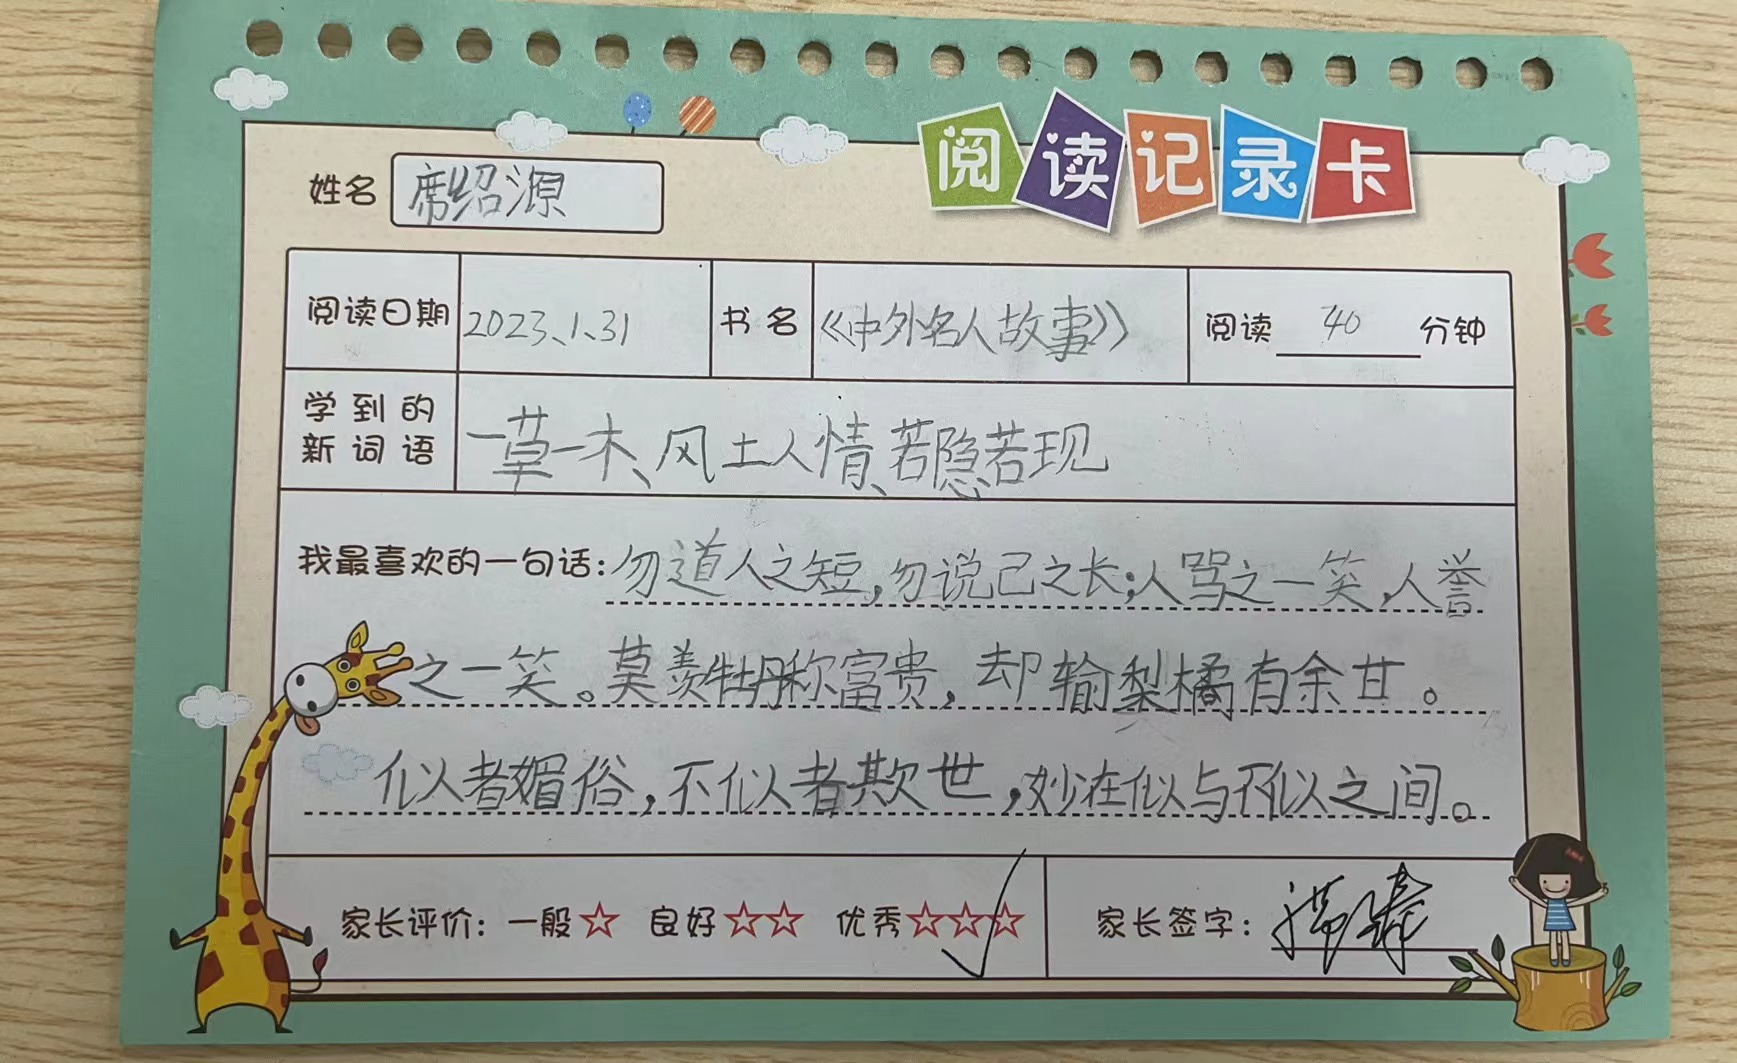 阅读记录卡
姓名 席绍源
阅读日期 2023、1、31 书名 《中外名人故事》 阅读 40 分钟
学到的新词语 一草一木、风土人情、若隐若现
我最喜欢的一句话：勿道人之短，勿说己之长；人骂之一笑，人誉
之一笑。莫羡牡丹称富贵，却输梨橘有余甘。
似者媚俗，不似者欺世，妙在似与不似之间。
家长评价：一般☆ 良好☆☆ 优秀☆☆☆ ✓ 家长签字：